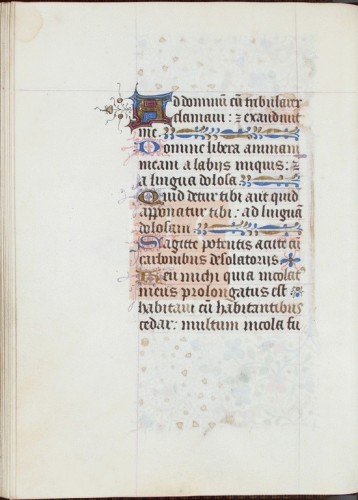 Ad dominū cū tribularer
clamaui : ⁊ exaudiuit
me.
Domine libera animam
meam a labijs iniquis : ⁊
a lingua dolosa.
Quid detur tibi aut quid
apponatur tibi : ad linguā
dolosam
Sagitte potentis acute cū
carbonibus desolatorijs
Heu michi quia incolat
meus prolongatus est
habitaui cū habitantibus
cedar : multum incola fu